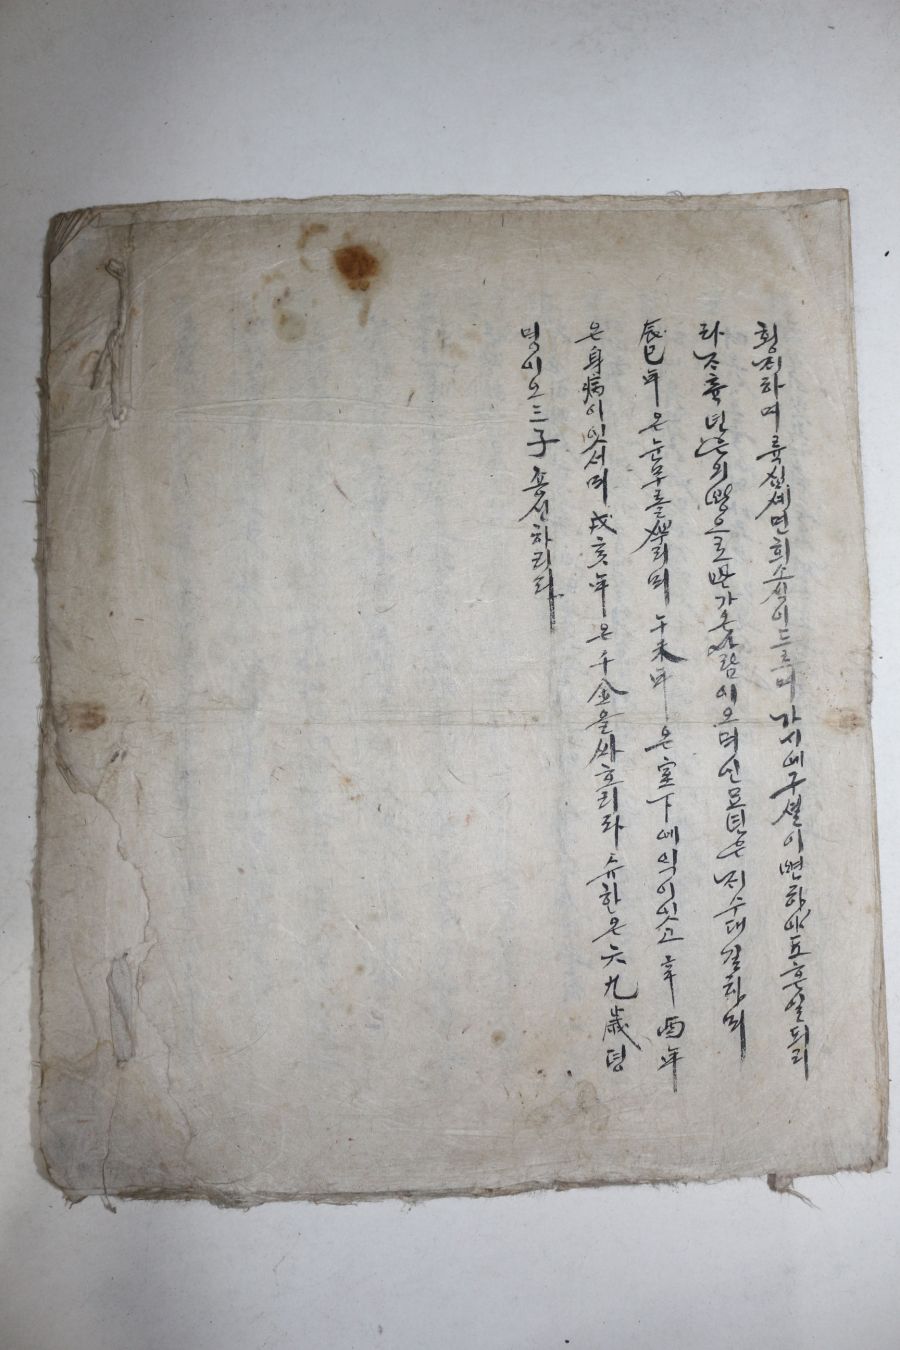 횡ᄌᆡ하며 륙십세면 희소식이 드르며 가시에 구셜이 변하야 도흔 일 되리
라 ᄌᆞ츅년은 외방으로 가 사람이오며 인묘년은 ᄌᆡ수 대길하며
辰巳年은 눈무를 ᄲᅮ리며 午未年은 室下에 익이 잇고 辛酉年
은 身病이 잇서며 戌亥年은 千金을 싸흐리라 슈한은 六九歲 뎡
명이오 三子 죵신하리라